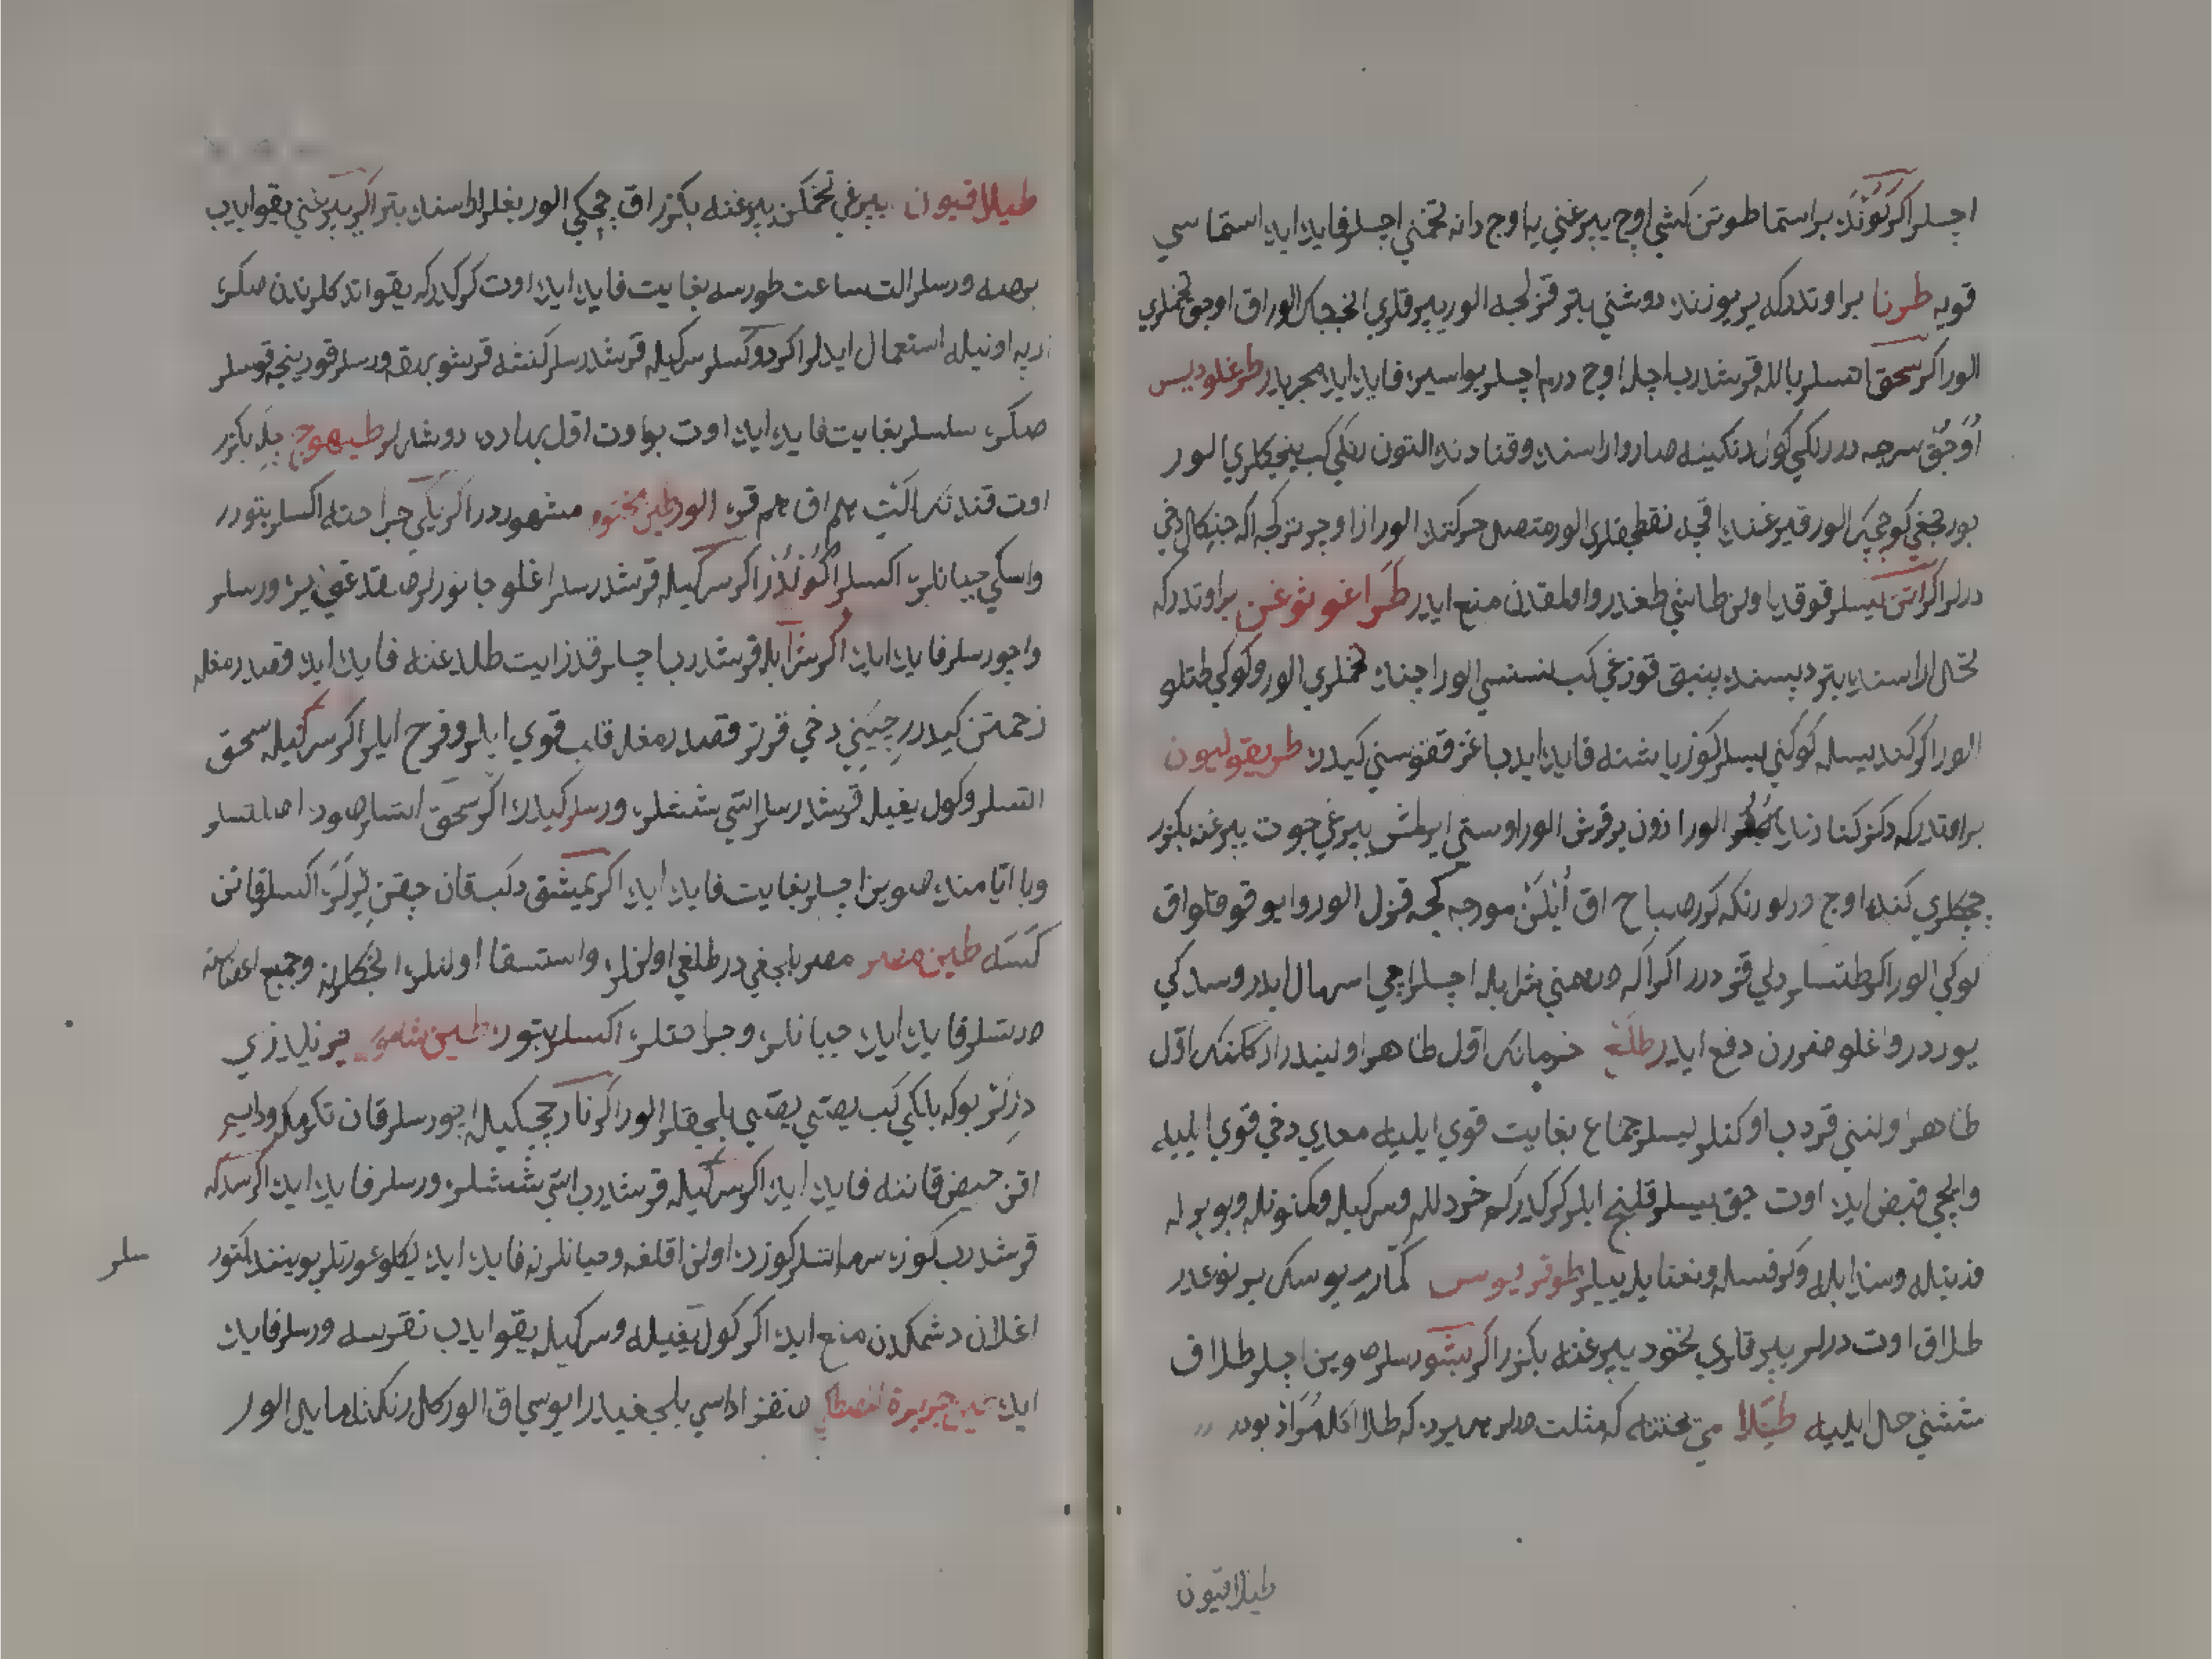 اچسلر اكر كونده بر استما طوتن كشي اوچ يپرغني يا اوچ دانه تخمني اچسلر فايده ايده استما سي
قويه طرنا بر اوتدر كه ير يوزنده دوشني بتر قزلجه الور يپرقلري انججك الور اق اوجق تخملري
الور اكر سحق اتسلر بالله قرشدرب اچلر اوچ درم اچسلر بواسيره فايده ايده مجربدر طرغلوديس
اوجق سرچه در رنكي كول رنكينه صارو اراسنده و قنادنده التون رنكي كب ينجكلري الور
بورنجغي كوچجك الور قيرغنده اقچه نقطه‌لري الور متصل حركتده الور ازاوچر تركجه اكه چنبكال دخي
درلر اكر اتن ييسلر قوقده اولن طاشي طغدر و اولمقدن منع ايدر طراغوثوغن بر اوتدر كه
نخل اراسنده بتر دپسنده پنبق قوزغي كب نسنسي الور اچنده تخملري الور و كوكي طتلو
الور اكر كنديسله كوكني ييسلر كوز ياشنه فايده ايدب اغز قخوسني كيدره طريقوليون
بر اوتدر كه دكز كنارنده الور اوزون بر قرش الور اوستي ايرلمش يپرغي چوت يپرغنه بكزر
چچكلري كنده اوچ درلو رنكه كورر صباح اق ايلكن مورجه كجه قزل الور و ايو قوقلو اق
كوكي الور اكر طتسلر دلي قزدرر اكر اكه درهمني شرابله اچسلر اچي اسهال ايدر و سدكي
يوردر و اغلو ضررن دفع ايدر طلع خرمانك اول ظاهر اولنيدر اركاكنك اول
ظاهر اولنني قردب اوكنلر ييسلر جماع بغايت قوي ايليه معده‌ي دخي قوي ايليه
و ايچي قبض ايده اوت چق ييسلر قلنج ايلر كركدر كه خردلله و سركيله و كمنونله و بوبرله
و زيتله و سدابله و كرفسله و نعنايله ييلر طوقريوس كمادريوسك بر نوعدر
طلاق اوت درلر يپرقلري نخود يپرغنه بكزر اكر بشورسلر صوين اچسلر طلاق
ششني حل ايليه طيلا مي پختنه كه مثلث درلر كه طلا اكله مراد بودر
طيلاقيون
طيلاقيون يپرغي تخمكن يپرغنه بكزر اق چچكي الور بغلر اراسنده بتر اكر يپرغني يقو ايدب
برصه ورسلر الت ساعت طورسه بغايت فايده ايده اوت كركدر كه يقو اتدكلرندن صكره
ارپه اونيله استعمال ايدلر اكر دوكسلر سركيله قرشدرسلر كنشه قرشو بهقه ورسلر قورينجه قوسلر
صكره سلسلر بغايت فايده ايده اوت بو اوت اول بهارده دوشرلر طيهوج بله بكزر
اوت قندنك التي هم اق هم قره الور طين مختوم مشهوردر اكر يكي جراحته اكسلر بتورر
و اسكي چبانلره اكسلر اكولدر اكر سركيله قرشدرسلر اغلو جانورلر صقدوغي يره ورسلر
و اچورسلر فايده ايده اكر شرابله قرشدرب اچسلر قدز ايت طلدغنه فايده ايده و قصدرمغله
زحمتن كيدرر چبيني دخي قرتر و قصدرمغله قلب قوي ايلر و فرح ايلر اكر سركيله سحق
اتسلر و كول يغيله قرشدرسلر اتي ششلره ورسلر كيدره اكر سحق اتسلر صوده اصلتسلر
و با ايامنده صوين اچسلر بغايت فايده ايده اكر يمشق دكب قان چقن يرلره اكسلر قانن
كسه طين مصر مصر بالجغي درطلغي اولنلره و استسقا اولنلره انجكلرنه و جميع اعضاسنه
درتسلر فايده ايده چبانلره و جراحتلره اكسلر بتوره طين شاموس قرنيلدزي
درلر بو كه بالكي كب يصتي يصتي بلجقلر الور اكر نار چچكيله اچورسلر قان تكرمكه و دايم
اقن حيض قاننه فايده ايده اكر سركيله قرشدرب اتي ششلره ورسلر فايده ايده اكر سدكه
قرشدرب كوزه سرمه اتسلر كوزده اولن اقلغه و چبانلرنه فايده ايده يكلو عورتلر بويننده كتورر
سلر
اغلان دشمكدن منع ايده اكر كول يغيله و سركيله يقو ايدب نقرسه ورسلر فايده
ايده طين جزيرة المصطكي صقز اداسي بلجغيدر ايوسي اق الور كل رنكنه مايل الور